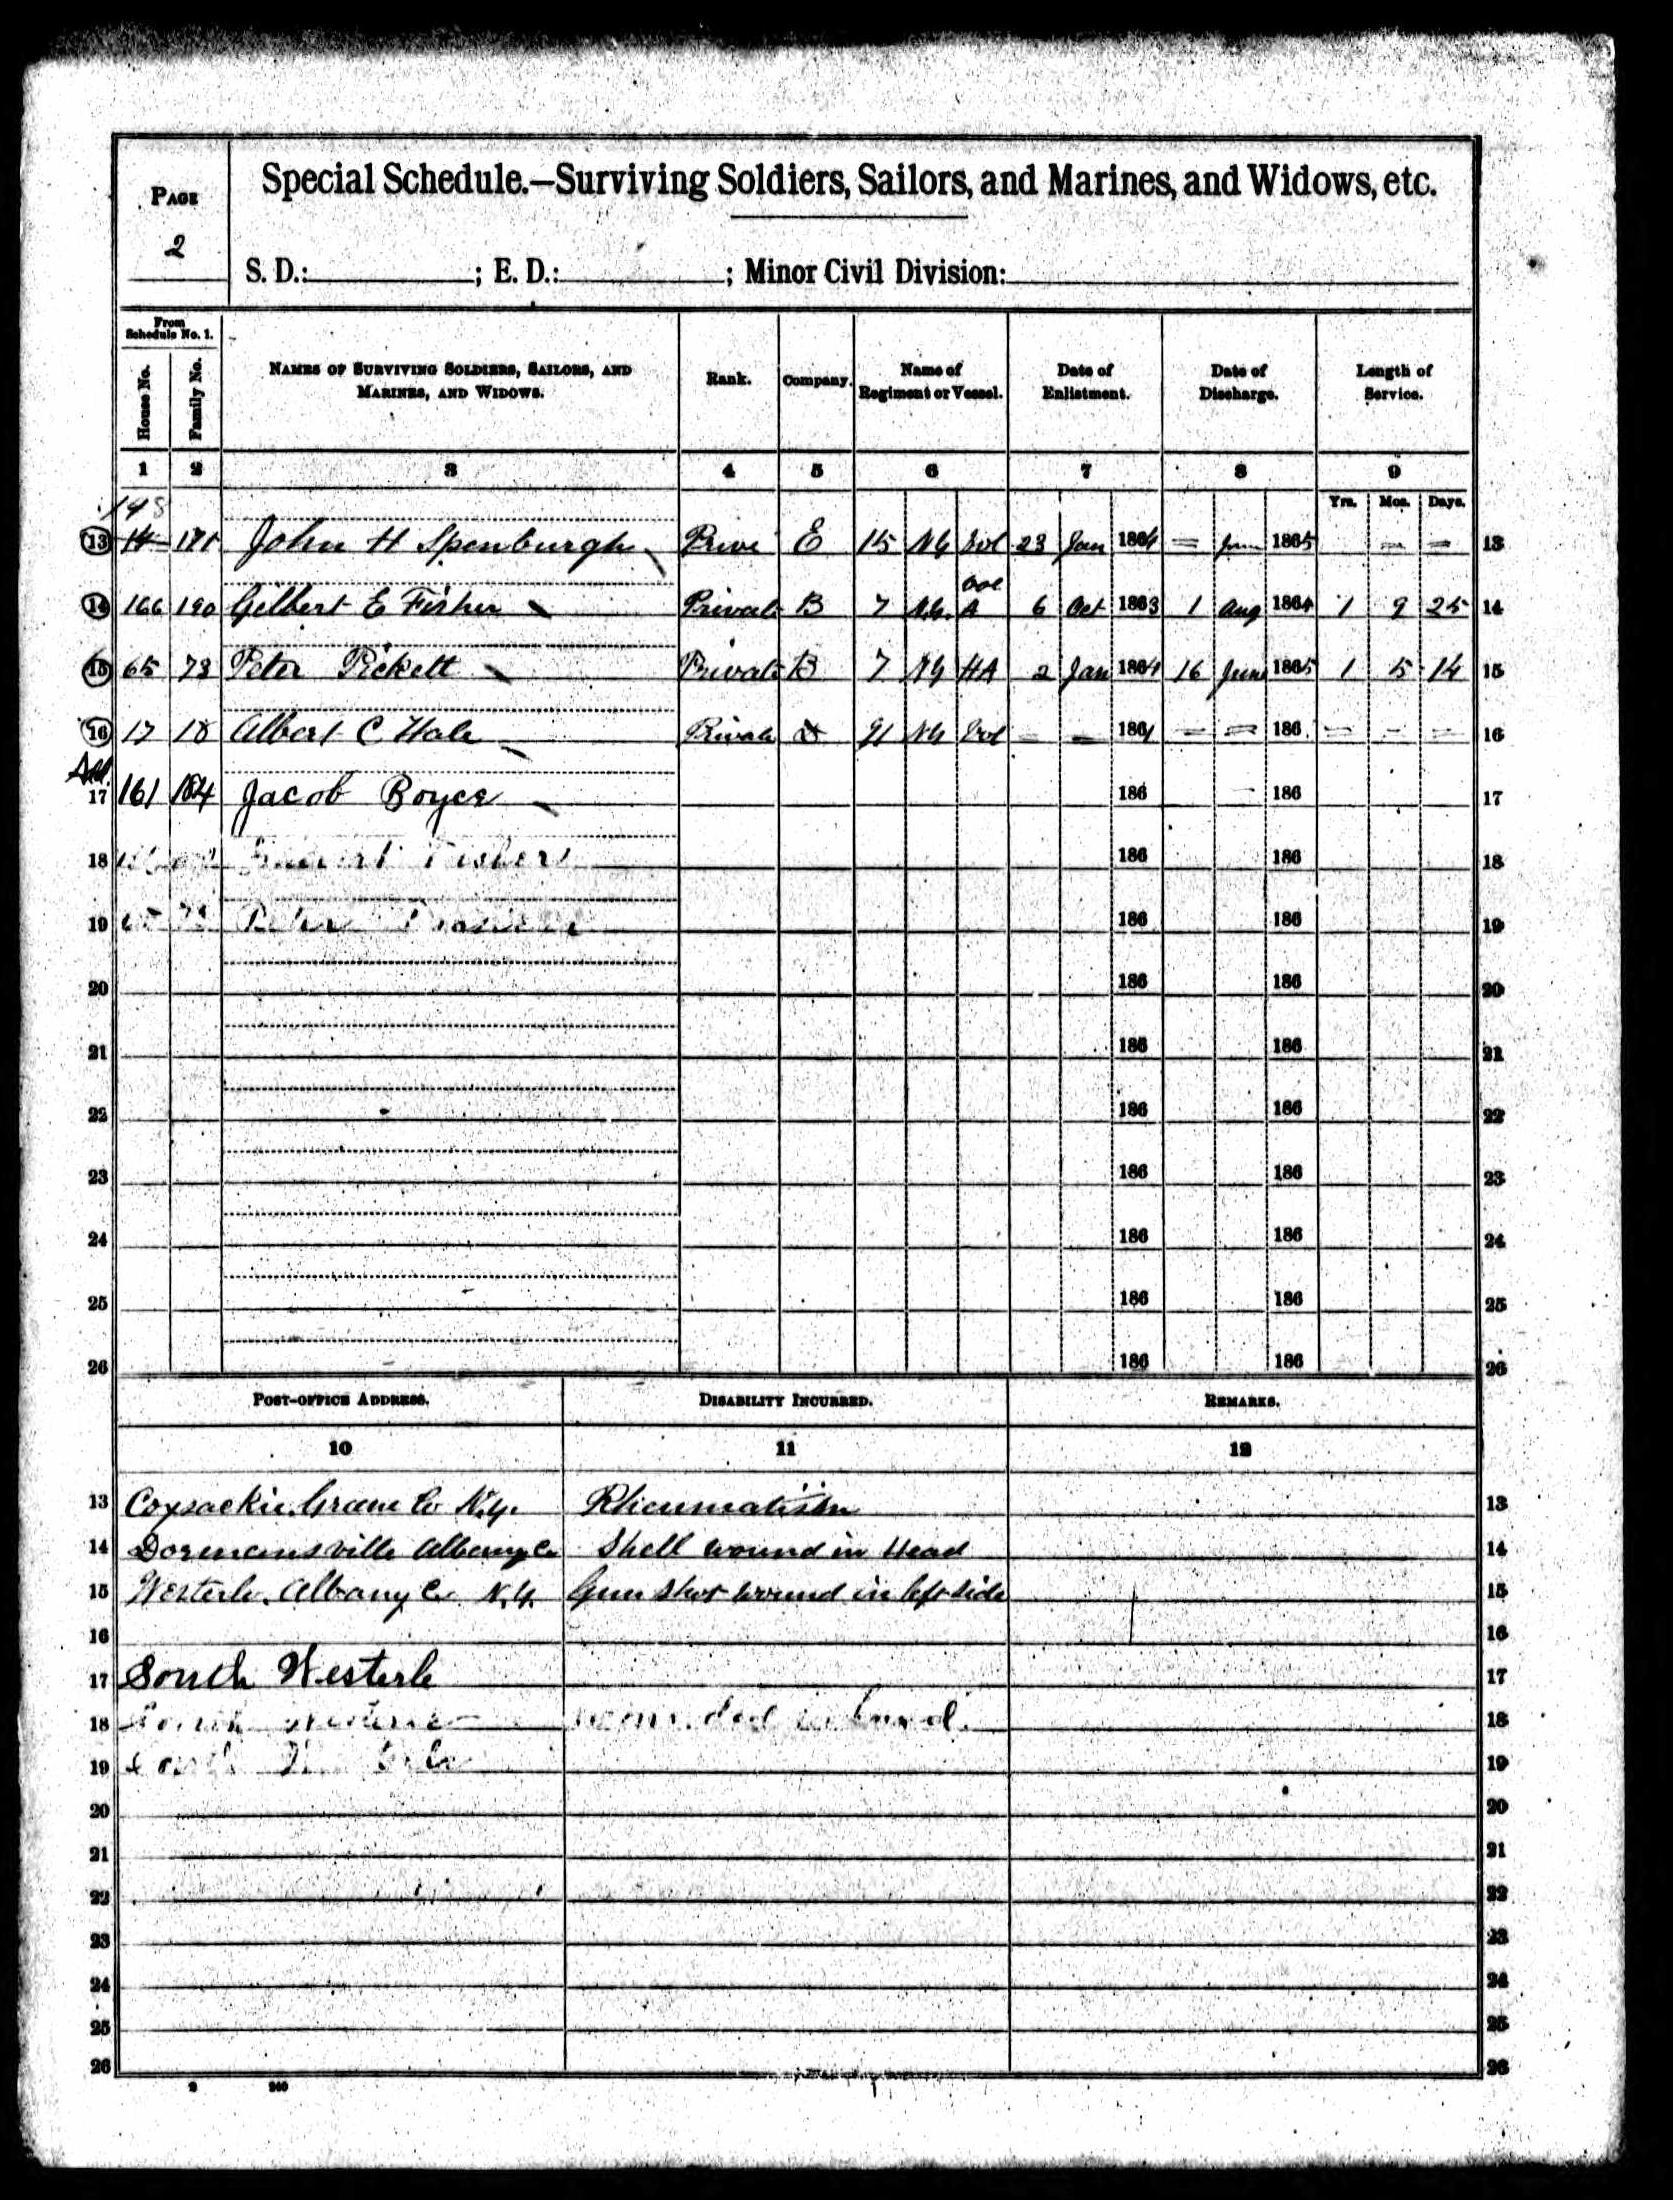 PAGE
2
Special Schedule.—Surviving Soldiers, Sailors, and Marines, and Widows, etc.
S. D.: ; E. D.: ; Minor Civil Division:
From Schedule No. 1.
House No.
Family No.
NAMES OF SURVIVING SOLDIERS, SAILORS, AND MARINES, AND WIDOWS.
Rank.
Company.
Name of Regiment or Vessel.
Date of Enlistment.
Date of Discharge.
Length of Service.
1 2 3 4 5 6 7 8 9
Yrs. Mos. Days.
148
13 171 John H Spenburgh Prive E 15 NY Vol 23 Jan 1864 = June 1865 = = 13
Vol
14 166 190 Gilbert E Fisher Private B 7 N.Y. A 6 Oct 1863 1 Aug 1864 1 9 25 14
15 65 73 Peter Pickett Private B 7 NY HA 2 Jan 1864 16 June 1865 1 5 14 15
16 17 18 Albert C Hale Private 91 NY Vol = = 1861 = = 186 = = = 16
Add.
17 161 184 Jacob Boyce 186 186 17
18 Fisher 186 186 18
19 73 Peter 186 186 19
20 186 186 20
21 186 186 21
22 186 186 22
23 186 186 23
24 186 186 24
25 186 186 25
26 186 186 26
POST-OFFICE ADDRESS. DISABILITY INCURRED. REMARKS.
10 11 12
13 Coxsackie. Greene Co N.Y. Rheumatism 13
14 Dormansville Albany Co Shell wound in Head 14
15 Westerlo. Albany Co N.Y. Gun shot wound in left side 15
16 16
17 South Westerlo 17
18 South Westerlo wounded in hand. 18
19 South 19
20 20
21 21
22 22
23 23
24 24
25 25
26 26